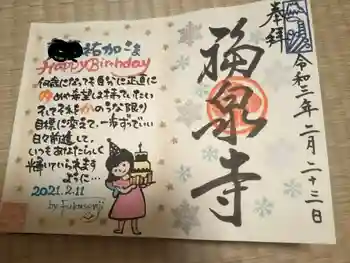 祐加さま
Happy Birthday
何歳になっても自分に正直に
ゆめや希望は持っていたい
そしてそれをかのうな限り
目標に変えて、一歩ずつでいい
日々前進して
いつもあなたらしく
輝いていられます
ように…
2021.2.11
by Fukusenji
奉拝
福泉寺
令和三年二月二十三日